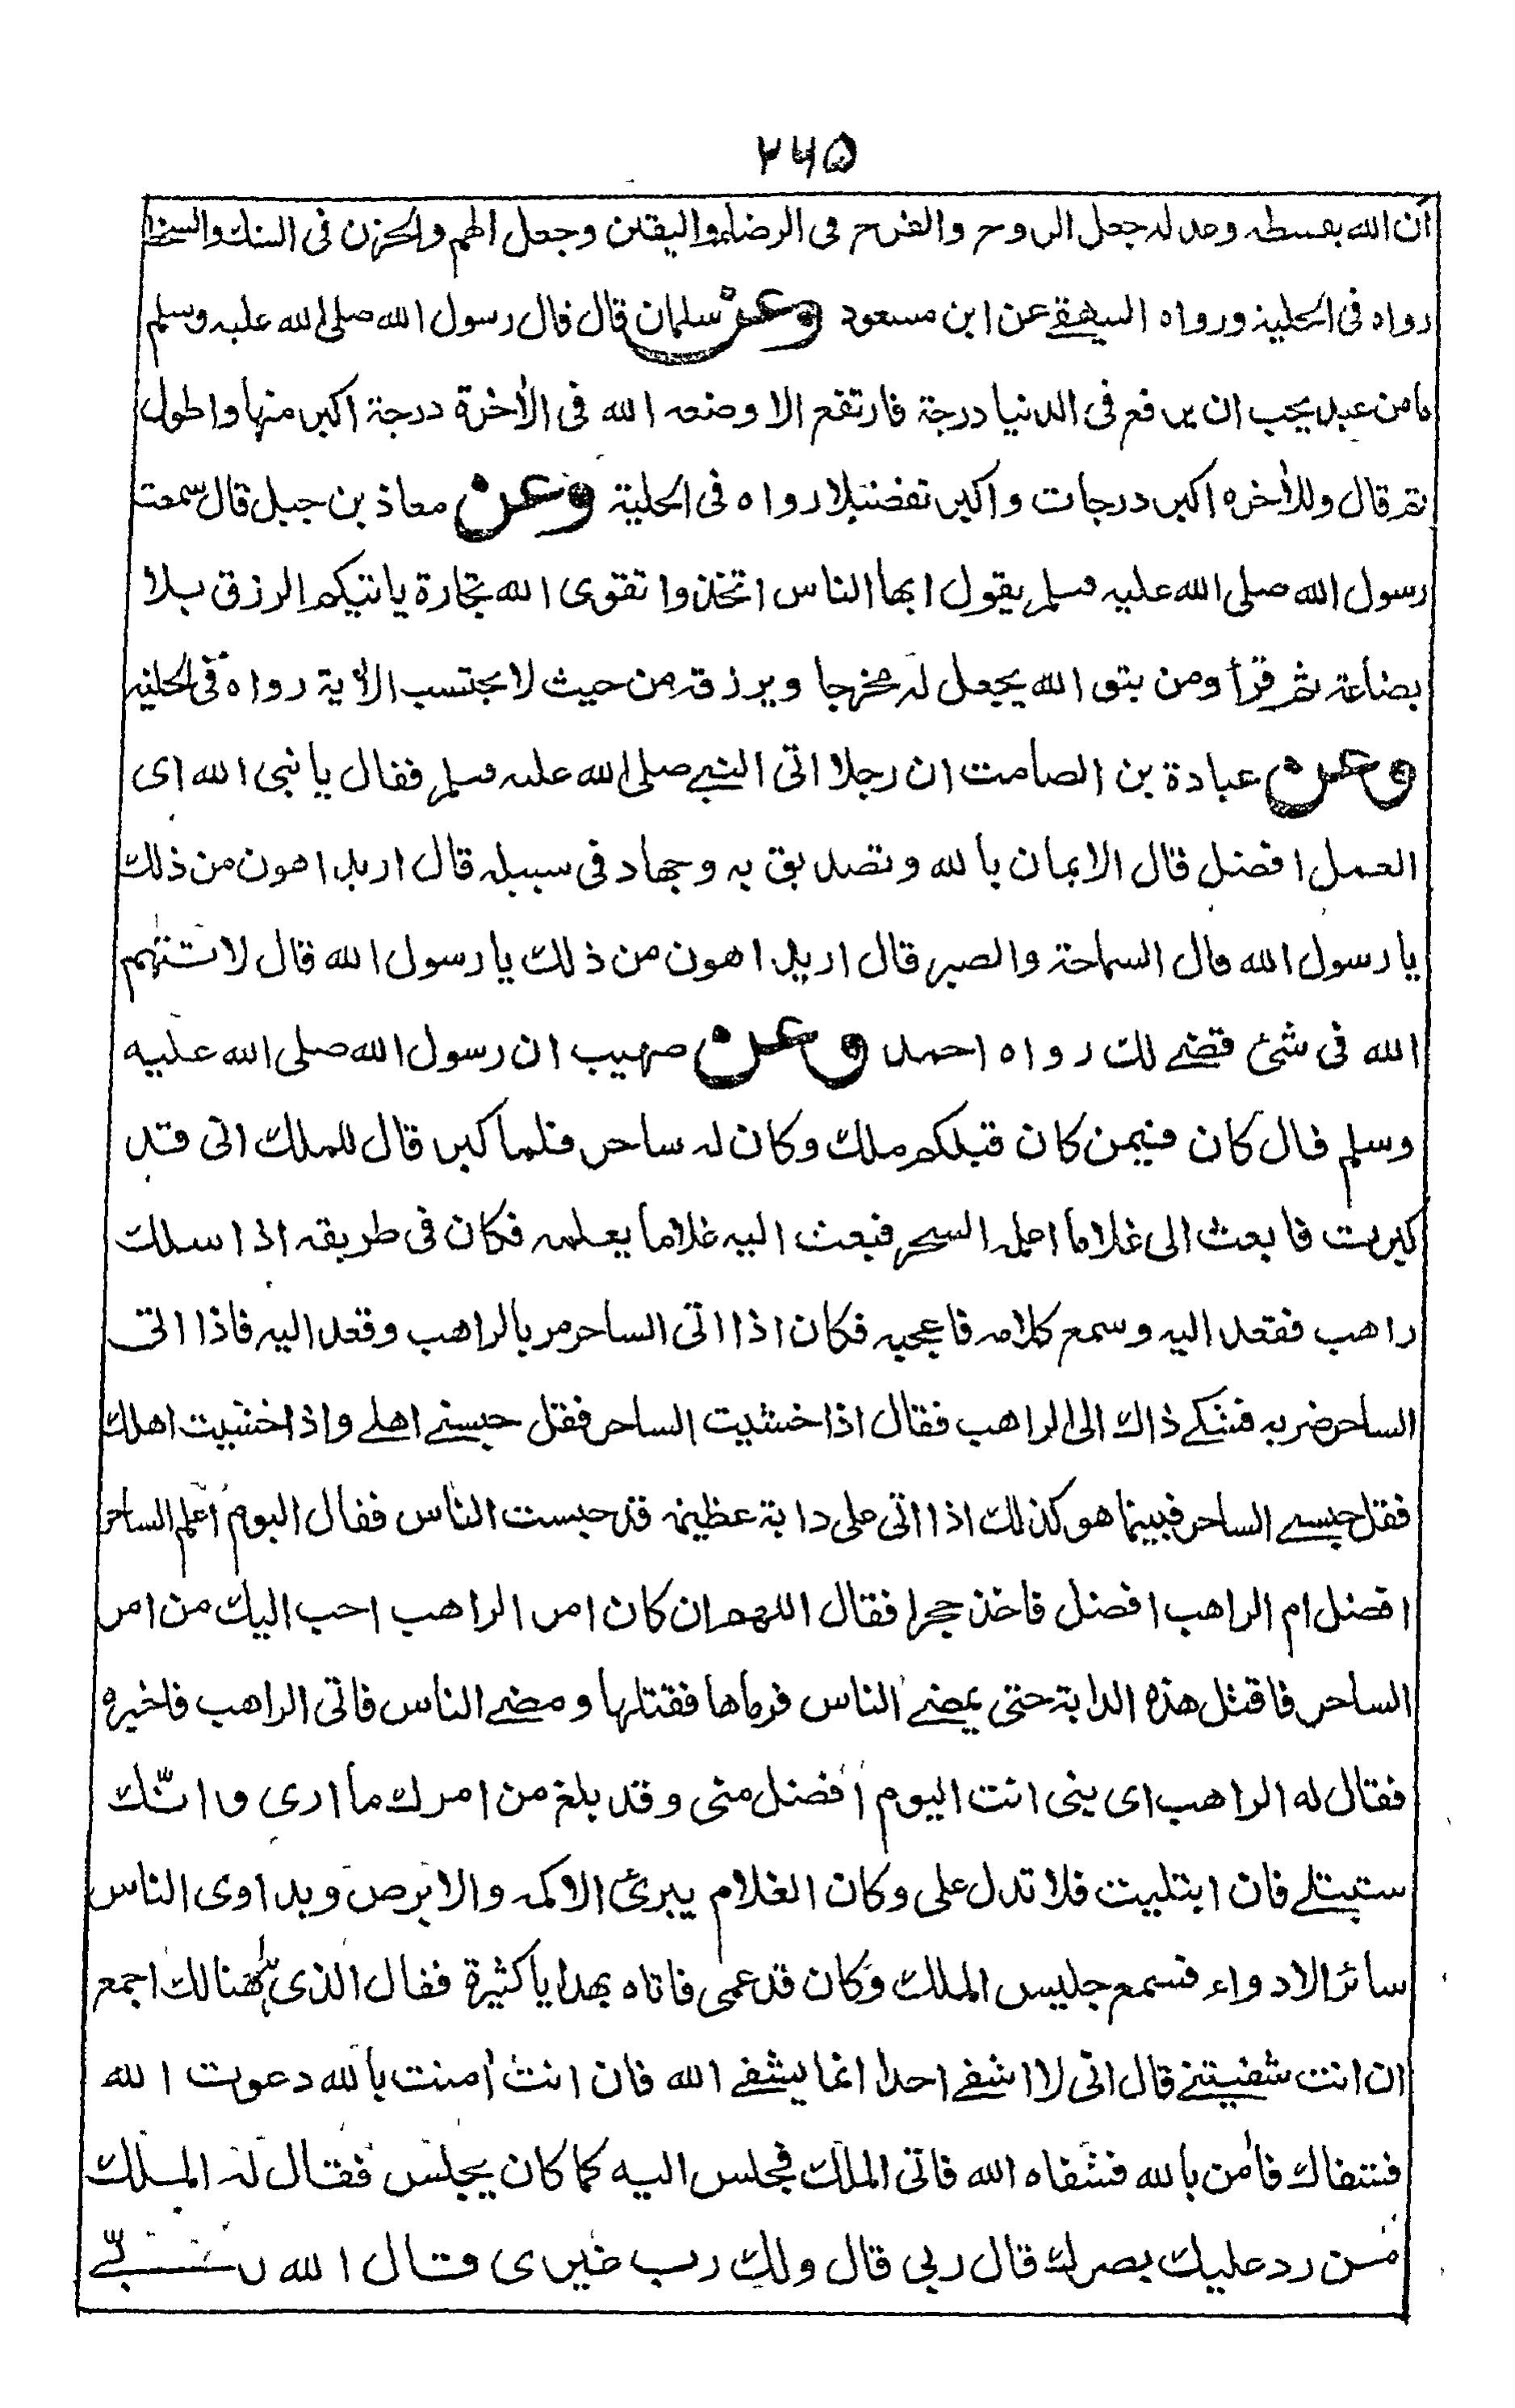 ٢٦٥
ان الله بقسطه وعدله جعل الروح والفرح فى الرضا واليقين وجعل الهم والحزن فى الشك والسخط
رواه فى الحلية ورواه البيهقے عن ابن مسعود وعن سلمان قال قال رسول الله صلى الله عليه وسلم
ما من عبد يحب ان يرفع فى الدنيا درجة فارتفع الا وضعه الله فى الأخرة درجة اكبر منها واطول
ثم قال وللأخرة اكبر درجات واكبر تفضيلا رواه فى الحلية وعن معاذ بن جبل قال سمعت
رسول الله صلى الله عليه وسلم يقول ايها الناس اتخذوا تقوى الله تجارة ياتيكم الرزق بلا
بضاعة ثم قرأ ومن يتق الله يجعل له مخرجا ويرزقه من حيث لا يحتسب الأية رواه فى الحلية
وعن عبادة بن الصامت ان رجلا اتى النبے صلى الله عليه وسلم فقال يا نبى الله اى
العمل افضل قال الايمان بالله وتصديق به وجهاد فى سبيله قال اريد اهون من ذلك
يا رسول الله قال السماحة والصبر قال اريد اهون من ذلك يا رسول الله قال لا تتهم
الله فى شئ قضے لك رواه احمد وعن صهيب ان رسول الله صلى الله عليه
وسلم قال كان فيمن كان قبلكم ملك وكان له ساحر فلما كبر قال للملك انى قد
كبرت فابعث الى غلاما اعمله السحر فبعث اليه غلاما يعلمه فكان فى طريقه اذا سلك
راهب فقعد اليه وسمع كلامه فاعجبه فكان اذا اتى الساحر مر بالراهب وقعد اليه فاذا اتى
الساحر ضربه فشكے ذاك الى الراهب فقال اذا خشيت الساحر فقل حبسنے اهلے واذا خشيت اهلك
فقل حبسنے الساحر فبينما هو كذلك اذا اتى على دابة عظيمة قد حبست الناس فقال اليوم اعلم الساحر
افضل ام الراهب افضل فاخذ حجرا فقال اللهم ان كان امر الراهب احب اليك من امر
الساحر فاقتل هذه الدابة حتى يمضے الناس فرماها فقتلها ومضے الناس فاتى الراهب فاخبره
فقال له الراهب اى بنى انت اليوم افضل منى وقد بلغ من امرك ما ارى وانّك
ستبتلے فان ابتليت فلا تدل على وكان الغلام يبرئ الاكمه والابرص ويداوى الناس
سائر الادواء فسمع جليس الملك وكان قد عمى فاتاه بهدايا كثيرة فقال الذى ههنا لك اجمع
ان انت شفيتنے قال انى لا اشفے احدا انما يشفے الله فان انت أمنت بالله دعوت الله
فشفاك فأمن بالله فشفاه الله فاتى الملك فجلس اليه كما كان يجلس فقال له الملك
من رد عليك بصرك قال ربى قال ولك رب غيرى قال الله ربّے